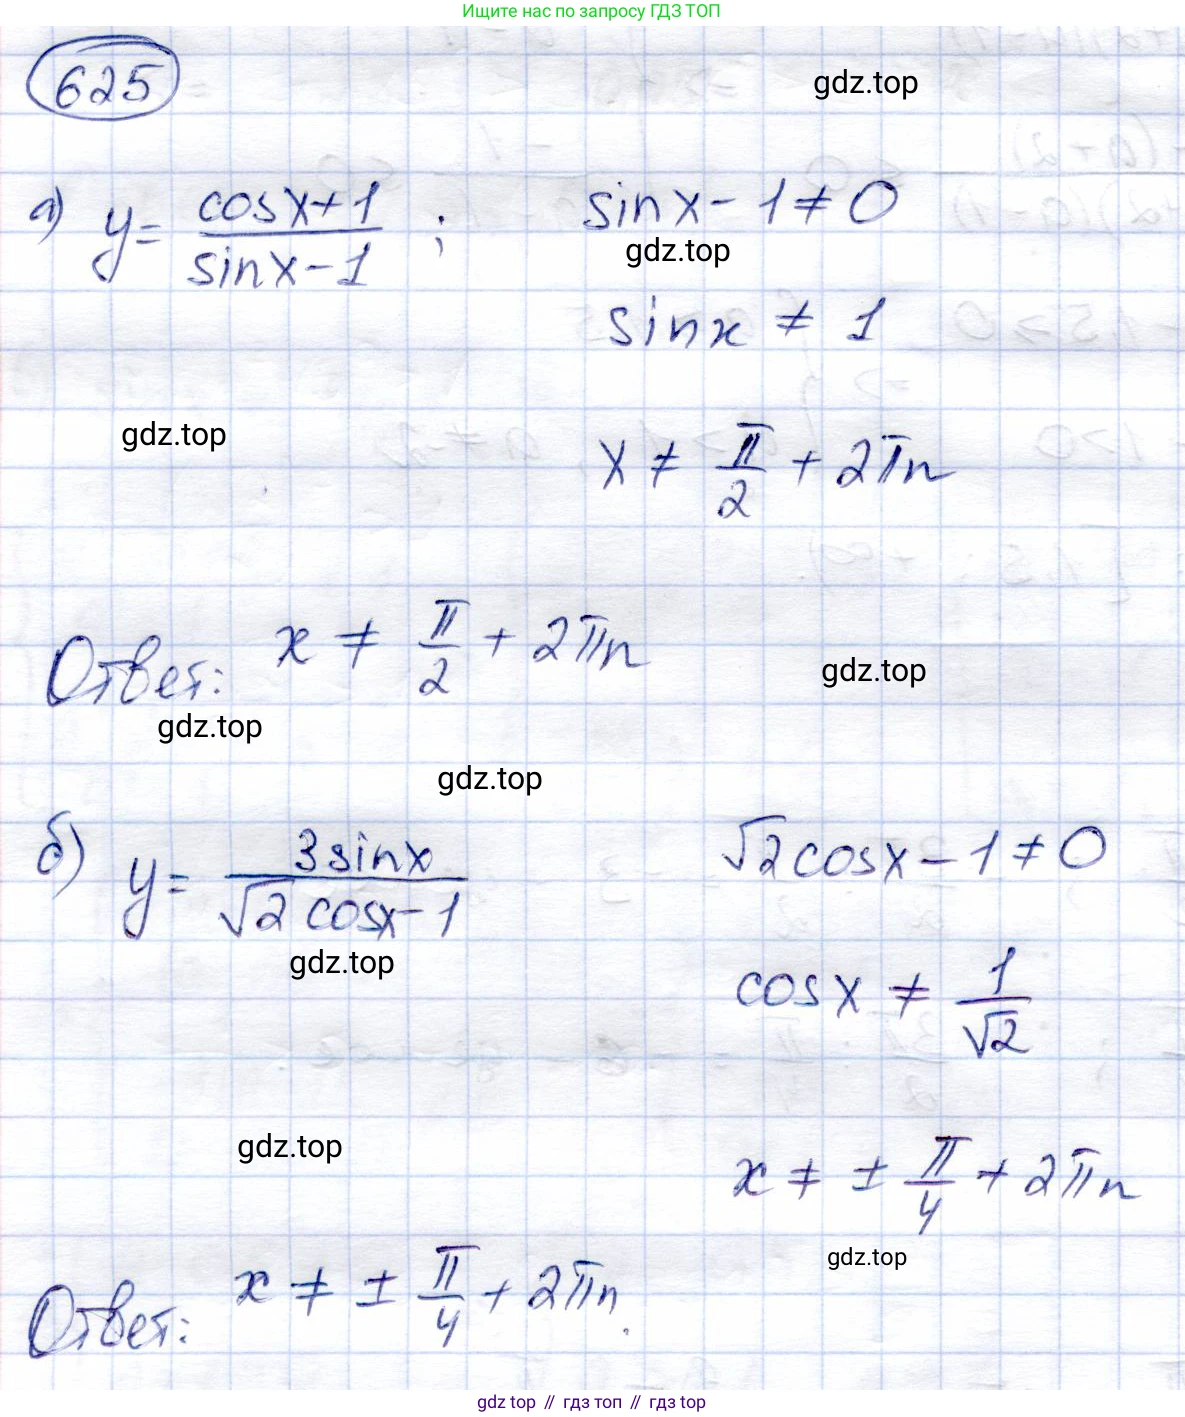 Ищите нас по запросу ГДЗ ТОП
625
gdz.top
а) y = (cosx+1)/(sinx-1) ; sinx - 1 ≠ 0
gdz.top
sinx ≠ 1
gdz.top
x ≠ π/2 + 2πn
Ответ: x ≠ π/2 + 2πn
gdz.top
gdz.top
gdz.top
б) y = 3sinx/(√2 cosx-1) √2cosx - 1 ≠ 0
gdz.top
cosx ≠ 1/√2
gdz.top
x ≠ ± π/4 + 2πn
gdz.top
Ответ: x ≠ ± π/4 + 2πn.
gdz top // гдз топ // gdz top